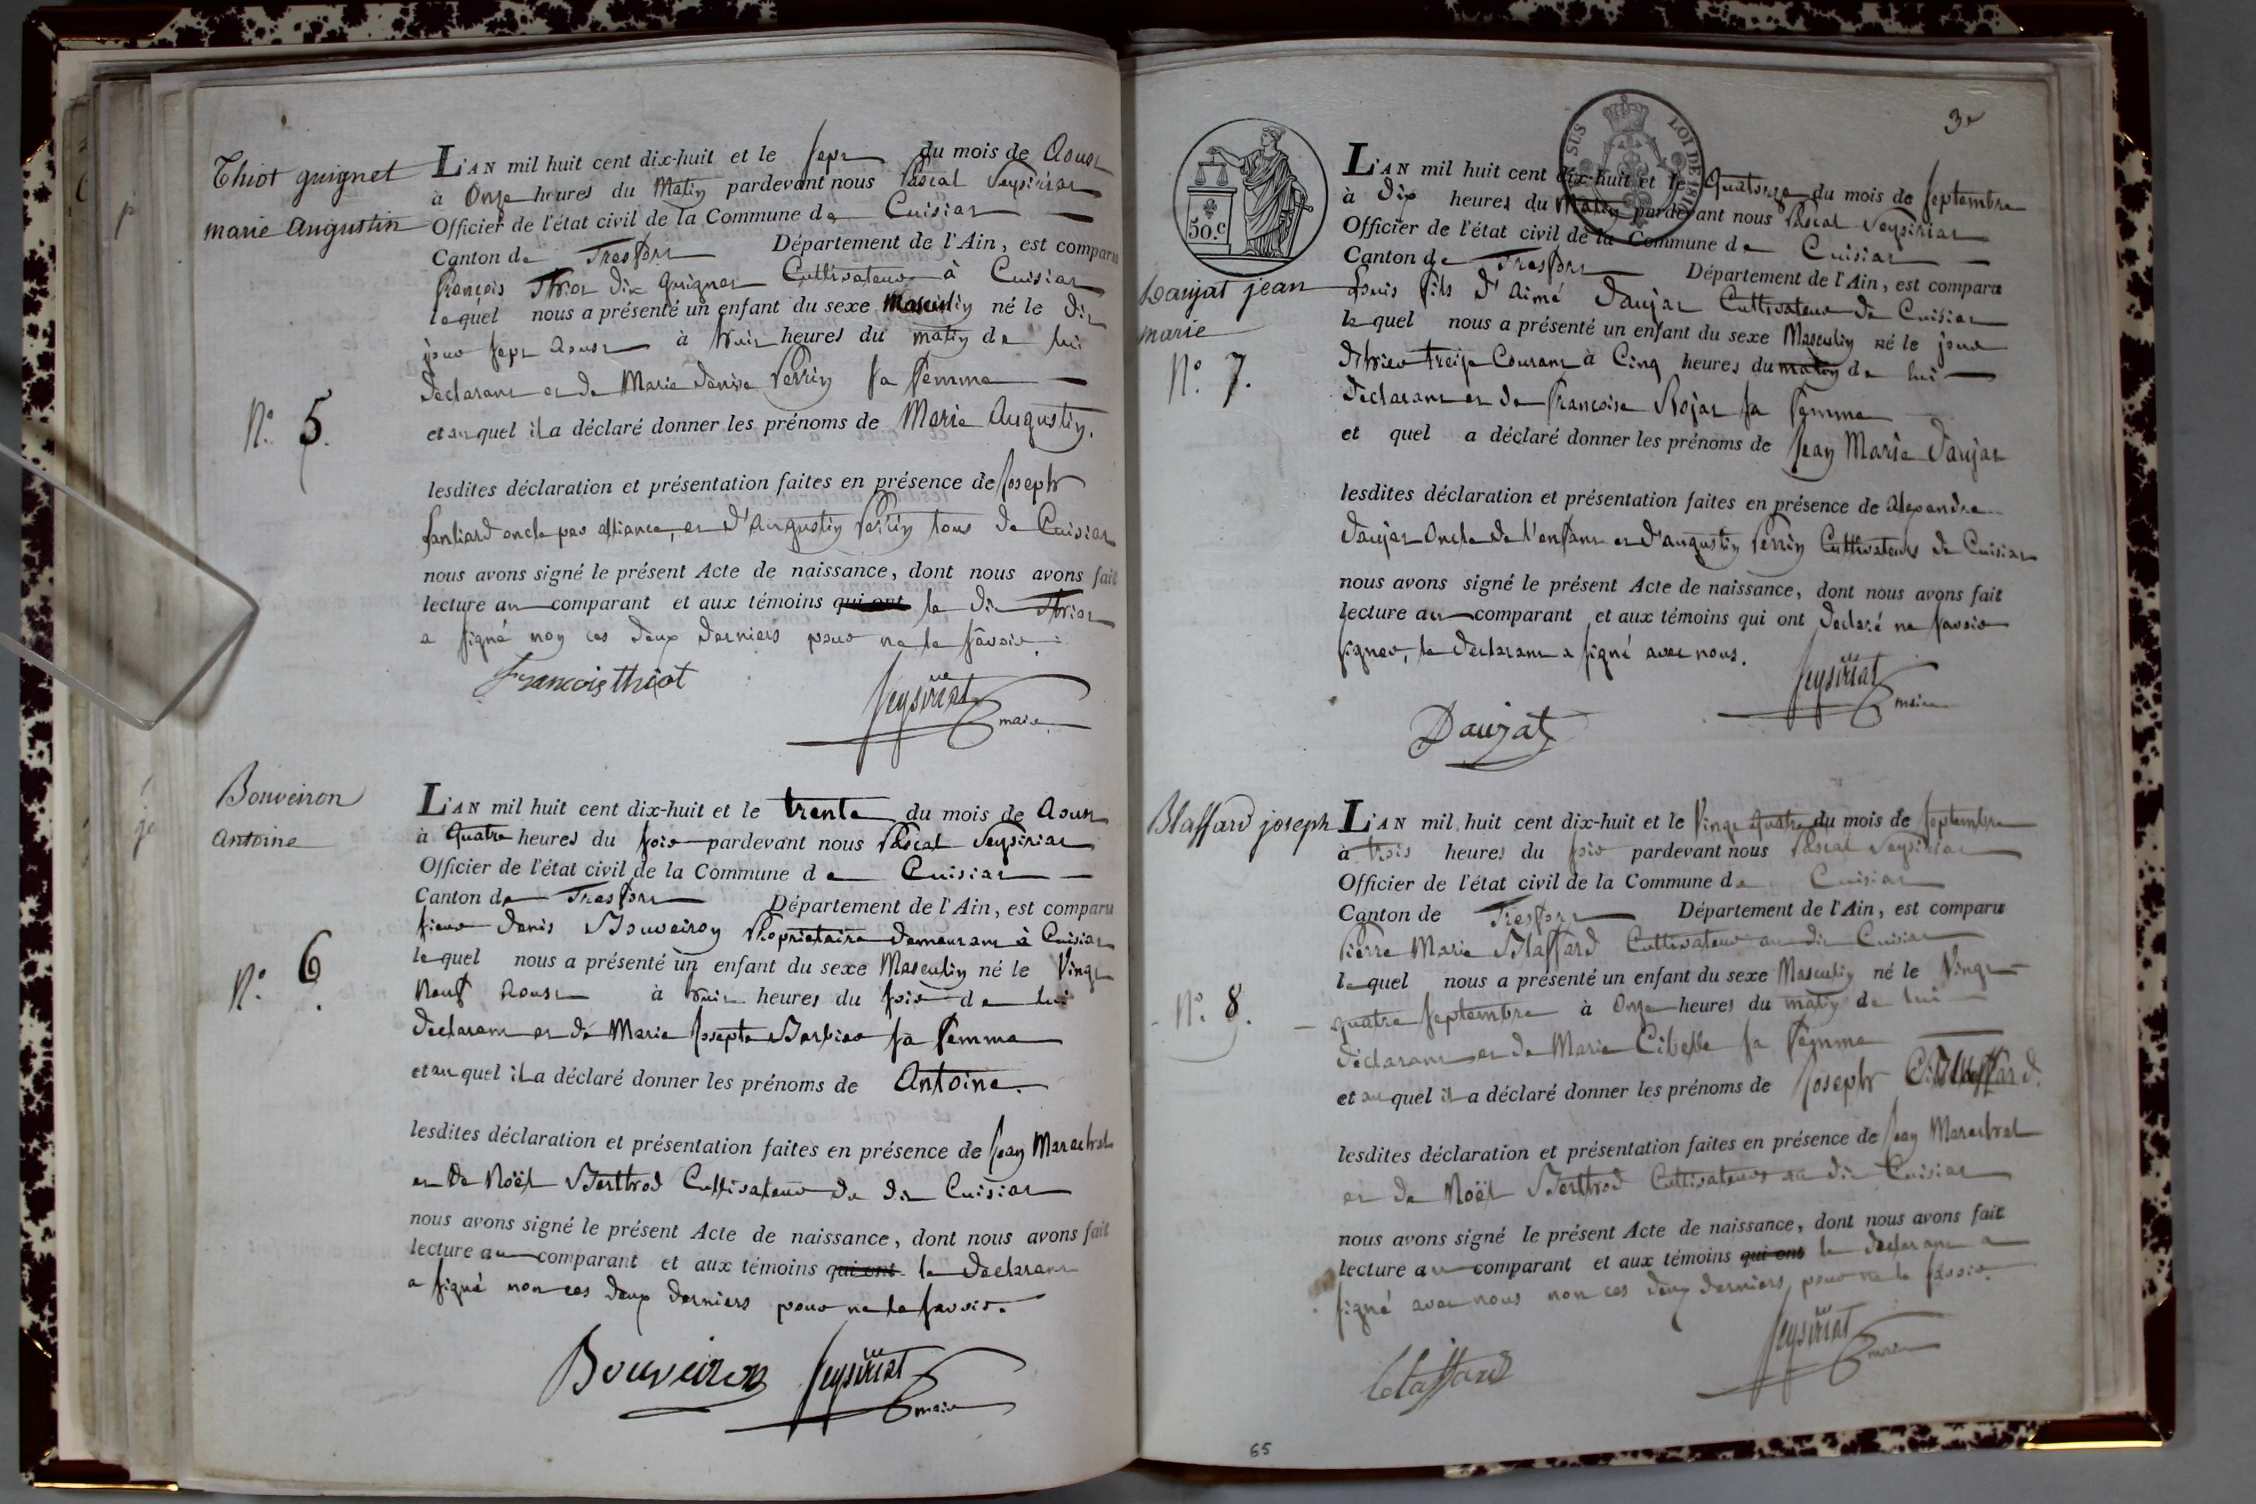 Thiot guignet
marie Augustin
N.° 5.
L'AN mil huit cent dix-huit et le sept du mois de Aoust
à Onze heures du Matin pardevant nous Pascal Seysiriat
Officier de l'état civil de la Commune de Cuisiat
Canton de Tresfort Département de l'Ain, est comparu
françois Thiot dit Guignet Cultivateur à Cuisiat
lequel nous a présenté un enfant du sexe Masculin né le dit
jour sept Aoust à huit heures du matin de lui
déclarant et de Marie denise Perrin sa femme
et auquel il a déclaré donner les prénoms de Marie Augustin.
lesdites déclaration et présentation faites en présence de Joseph
oncle par alliance, et d'Augustin Perrin tous de Cuisiat
nous avons signé le présent Acte de naissance, dont nous avons fait
lecture au comparant et aux témoins qui ont le dit Thiot
a signé non ces deux derniers pour ne le sávoir.
François thiot
Seysiriat
maire
Bouveiron
Antoine
N.° 6.
L'AN mil huit cent dix-huit et le trente du mois de Aoust
à Quatre heures du soir pardevant nous Pascal Seysiriat
Officier de l'état civil de la Commune de Cuisiat
Canton de Tresfort Département de l'Ain, est comparu
sieur denis Bouveiron Propriétaire demeurant à Cuisiat
lequel nous a présenté un enfant du sexe Masculin né le Vingt
Neuf Aoust à huit heures du soir de lui
déclarant et de Marie Josephte Barbier sa femme
et auquel il a déclaré donner les prénoms de Antoine.
lesdites déclaration et présentation faites en présence de Jean Marechal
et de Noël Berthod Cultivateurs du dit Cuisiat
nous avons signé le présent Acte de naissance, dont nous avons fait
lecture au comparant et aux témoins qui ont le déclarant
a signé non ces deux derniers pour ne le savoir.
Bouveiron
Seysiriat
maire
3e
50.c
SUS
LOI DE 1816
Daujat jean
marie
N.° 7.
L'AN mil huit cent dix-huit et le Quatorze du mois de Septembre
à dix heures du Matin pardevant nous Pascal Seysiriat
Officier de l'état civil de la Commune de Cuisiat
Canton de Tresfort Département de l'Ain, est comparu
Louis fils d'Aimé Daujat Cultivateur de Cuisiat
lequel nous a présenté un enfant du sexe Masculin né le jour
d'hier treize Courant à Cinq heures du matin de lui
déclarant et de françoise Rojat sa femme
et quel a déclaré donner les prénoms de Jean Marie Daujat
lesdites déclaration et présentation faites en présence de alexandre
daujat Oncle de l'enfant et d'augustin Perrin Cultivateurs de Cuisiat
nous avons signé le présent Acte de naissance, dont nous avons fait
lecture au comparant et aux témoins qui ont déclaré ne savoir
signer, le déclarant a signé avec nous.
Seysiriat
maire
Daujat
Blaffard joseph
N.° 8.
L'AN mil huit cent dix-huit et le Vingt Quatre du mois de Septembre
à trois heures du soir pardevant nous Pascal Seysiriat
Officier de l'état civil de la Commune de Cuisiat
Canton de Tresfort Département de l'Ain, est comparu
Pierre Marie Blaffard Cultivateur au dit Cuisiat
lequel nous a présenté un enfant du sexe Masculin né le Vingt
quatre Septembre à Onze heures du matin de lui
déclarant et de Marie Cibelle sa femme
et auquel il a déclaré donner les prénoms de Joseph Blaffard.
lesdites déclaration et présentation faites en présence de Jean Marechal
et de Noël Berthod Cultivateurs au dit Cuisiat
nous avons signé le présent Acte de naissance, dont nous avons fait
lecture au comparant et aux témoins qui ont le déclarant a
signé avec nous non ces deux derniers pour ne le sávoir.
Seysiriat
maire
blaffard
65